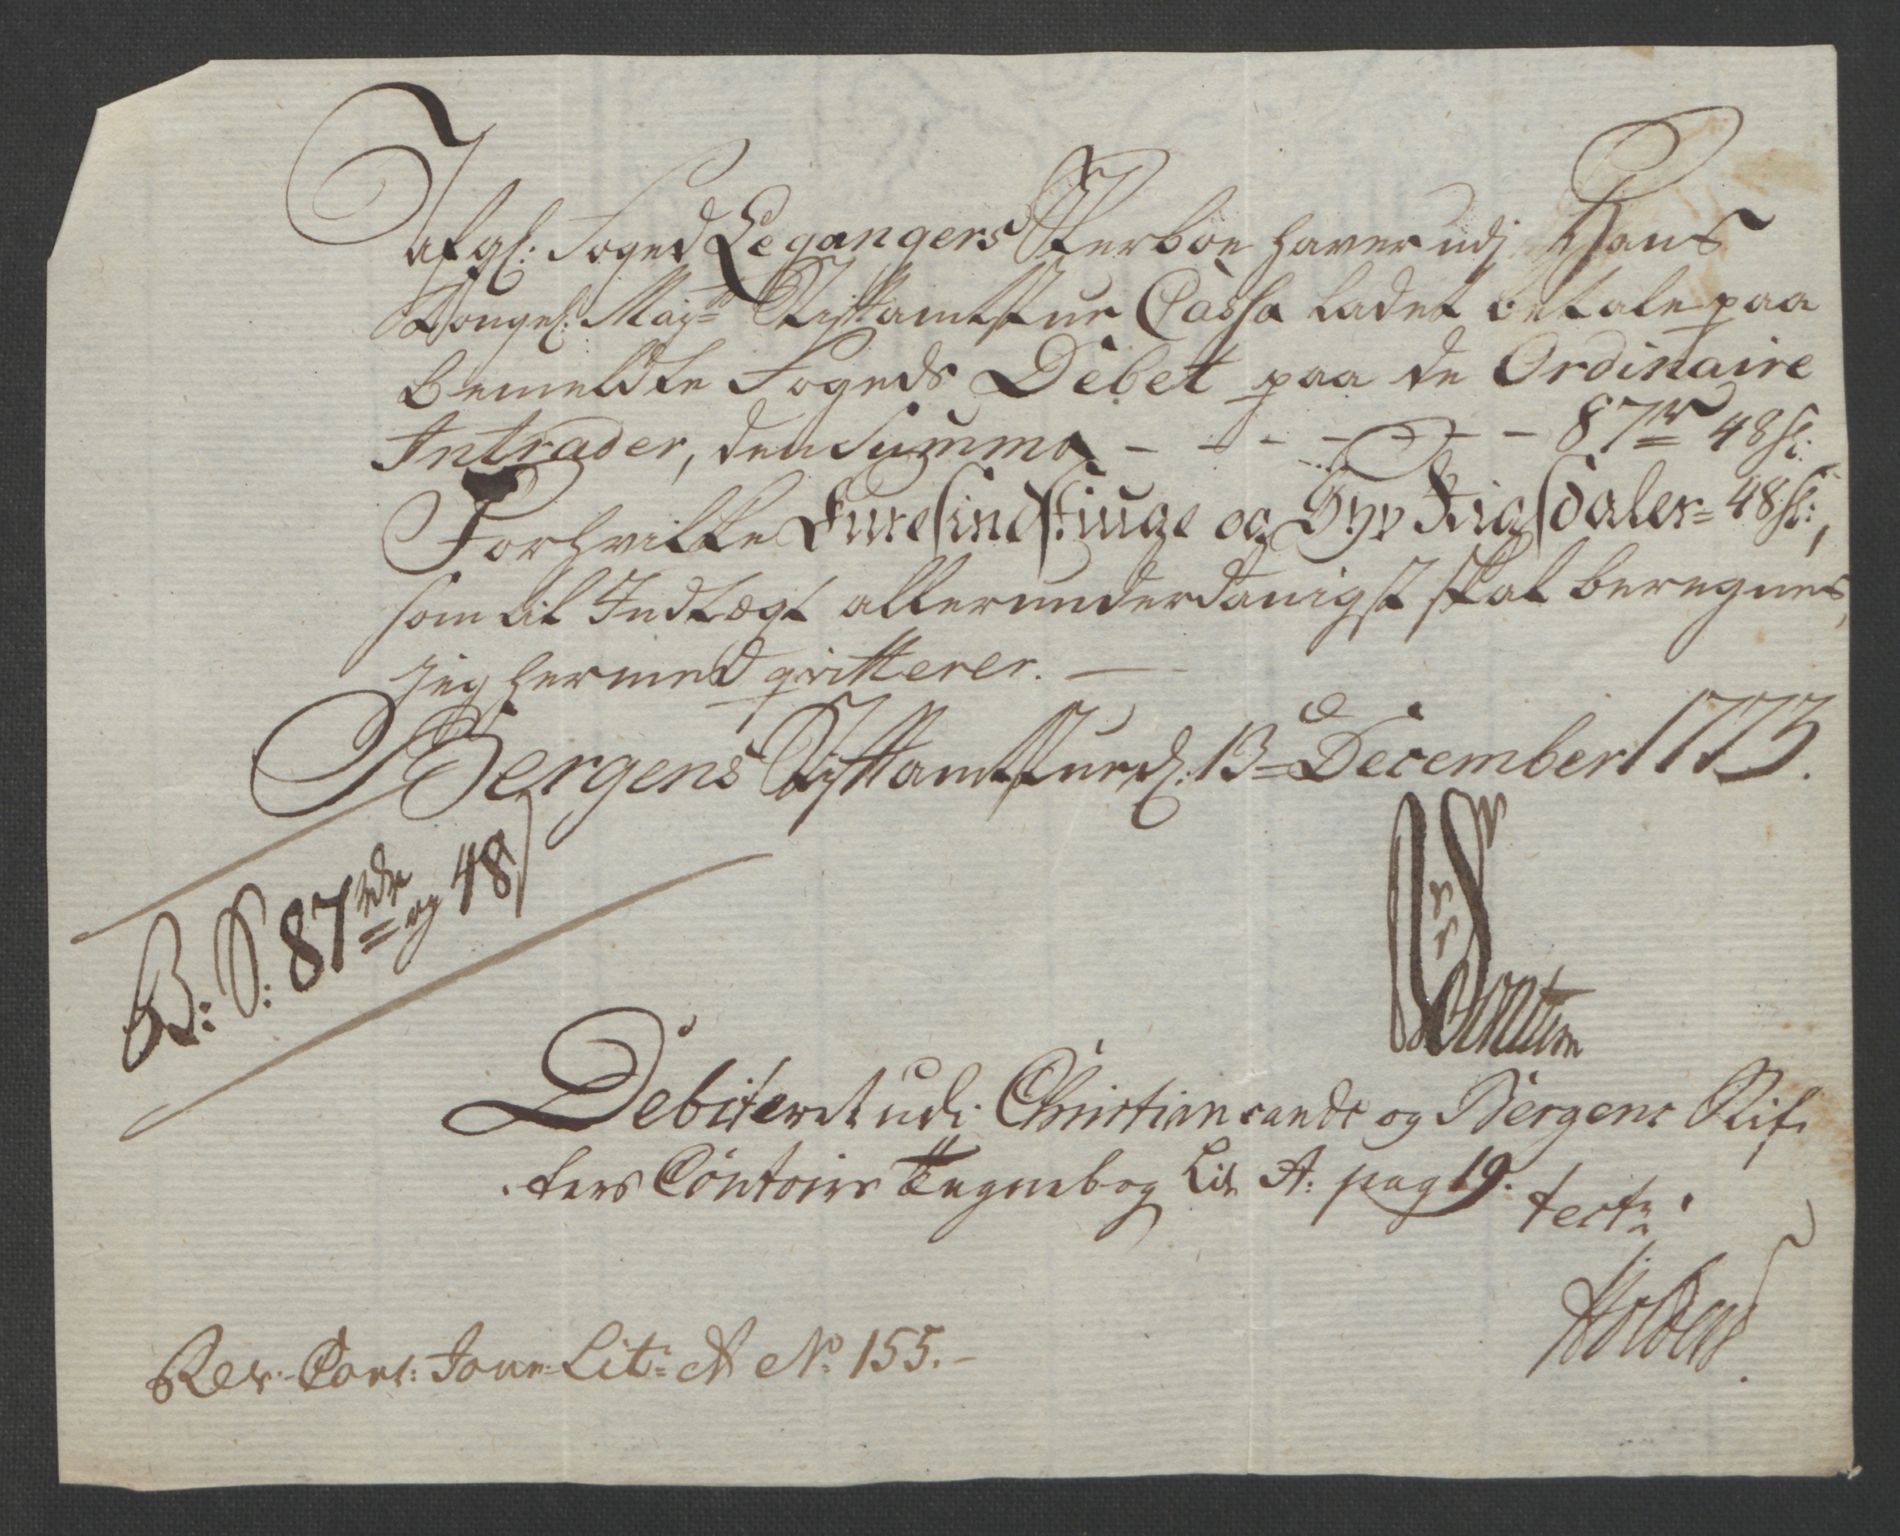 Afgl: Foged Legangers Sterboe haver udj Hans
Kongel: Mayts Stiftamtstue Cassa ladet betale paa
bemeldte Fogeds Debet paa de Ordinaire
Intrader, den Summa - - - - - - - 87 rd 48 s:
Forhvilke Firesindstiuge og Syv Rigsdaler 48 s:,
som til Indtægt allerunderdanigst skal beregnes,
jeg hermed qvitterer. —
Bergens Stiftamtstue d: 13de December 1773.
B: S: 87 rdr og 48 s
Debiteret udi Christiansands og Bergens Stif-
ters Contoirs Tegnebog Lit A: pag 19.
test:
Rev: Cont: Jour: Lit: A No 155.-